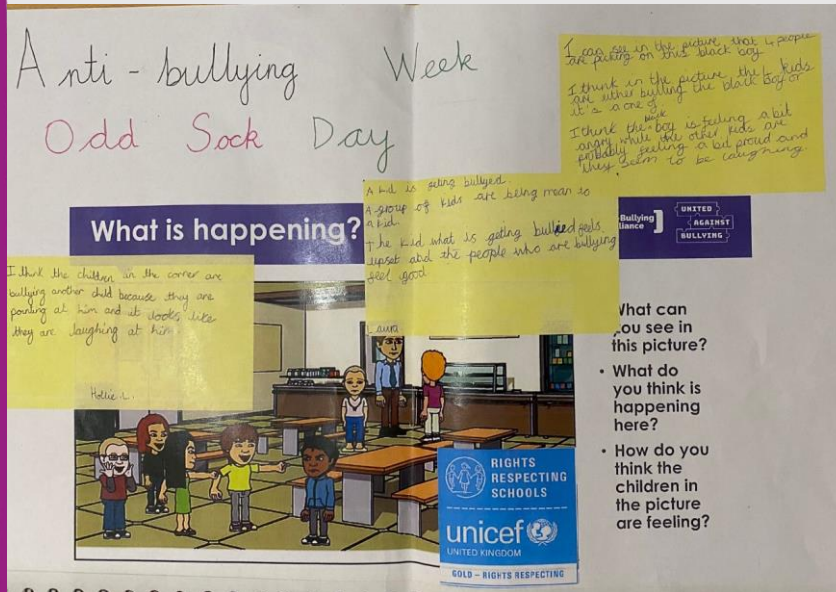 Anti-bullying Week
Odd Sock Day
I can see in the picture that 4 people
are picking on this black boy
I think in the picture the 4 kids
are either bulling the black boy or
it's a one of.
I think the black boy is feeling a bit
angry while the other kids are
probably feeling a bit proud and
they seem to be laughing.
A kid is geting bullyed.
A group of kids are being mean to
a kid.
The kid what is geting bullied feels
upset and the people who are bullying
feel good
Laura
What is happening?
-Bullying
liance
UNITED
AGAINST
BULLYING
I think the children in the corner are
bullying another child because they are
pointing at him and it looks like
they are laughing at him.
Hollie L.
What can
you see in
this picture?
• What do
you think is
happening
here?
• How do you
think the
children in
the picture
are feeling?
RIGHTS
RESPECTING
SCHOOLS
unicef
UNITED KINGDOM
GOLD – RIGHTS RESPECTING